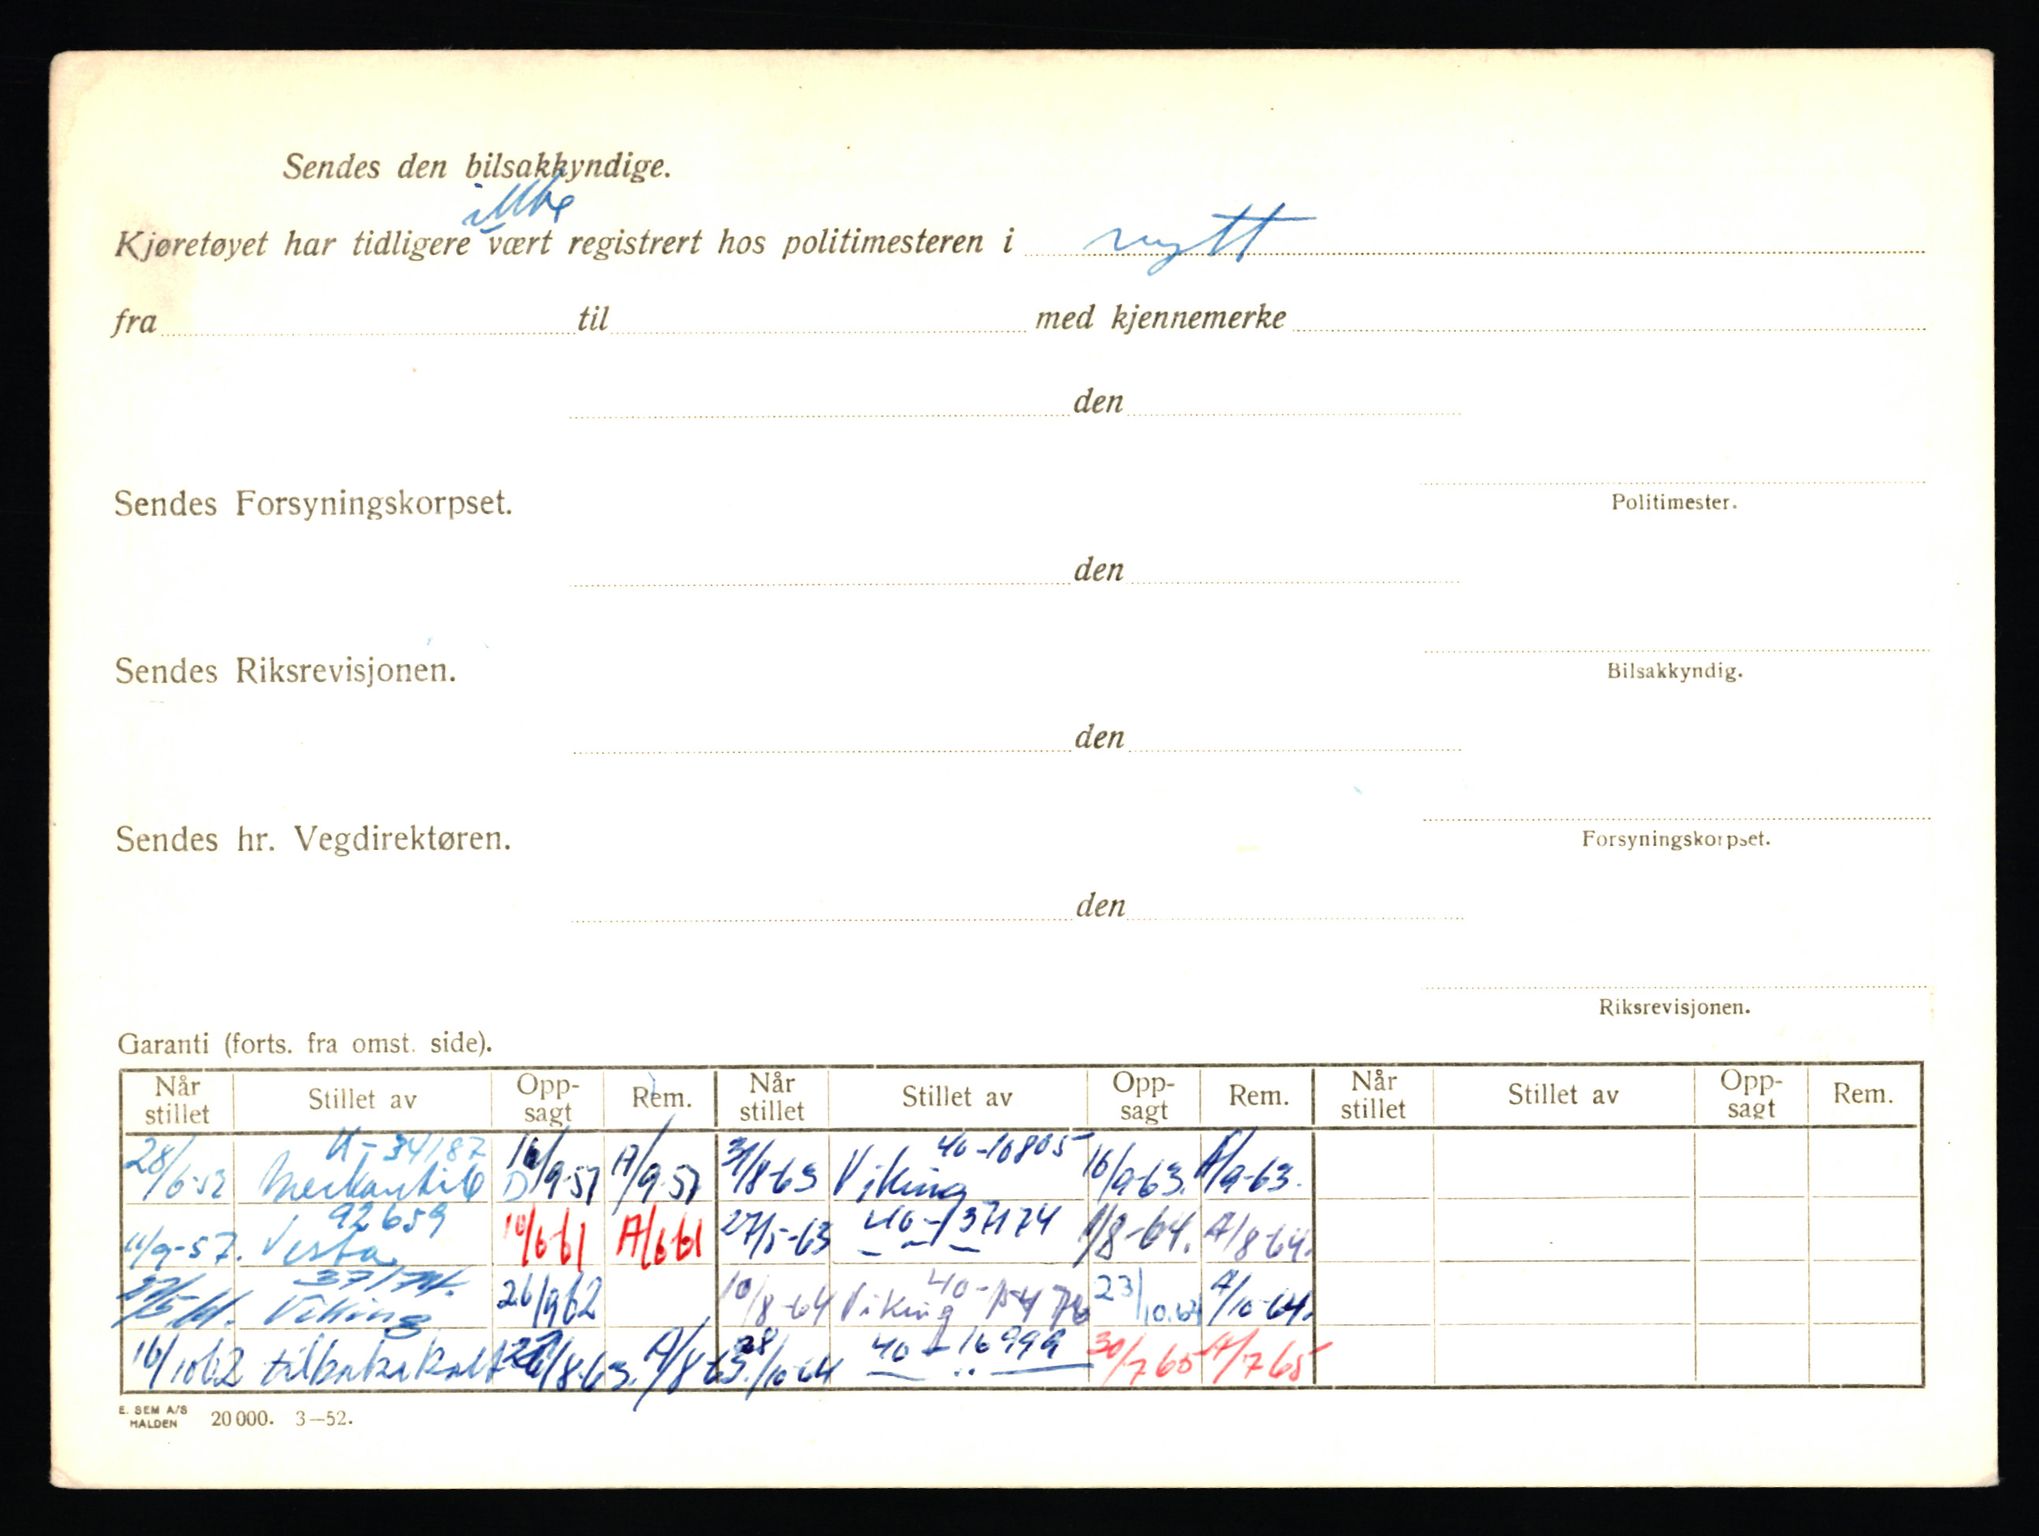 Sendes den bilsakkyndige.
ikke
Kjøretøyet har tidligere vært registrert hos politimesteren i nytt
fra til med kjennemerke
den
Sendes Forsyningskorpset.
Politimester.
den
Sendes Riksrevisjonen.
Bilsakkyndig.
den
Sendes hr. Vegdirektøren.
Forsyningskorpset.
den
Riksrevisjonen.
Garanti (forts. fra omst. side).
Når stillet Stillet av Opp-sagt Rem. Når stillet Stillet av Opp-sagt Rem. Når stillet Stillet av Opp-sagt Rem.
28/6-52 U-34187 Merkantile 16/9-57 A/9-57 31/8-63 Viking 40-10805 16/9-63. A/9-63.
11/9-57. 92659 Vesta 10/6-61 A/6-61 27/5-63 40-137174 1/8-64. A/8-64.
Viking 26/9 62 10/8-64 Viking 40- 23/10.64 A/10-64.
16/10 62 tilbakekalt /8-63. A/8-63. 28/10-64 40-16999 30/7 65 A/7 65
E. SEM A/S
HALDEN 20 000. 3-52.